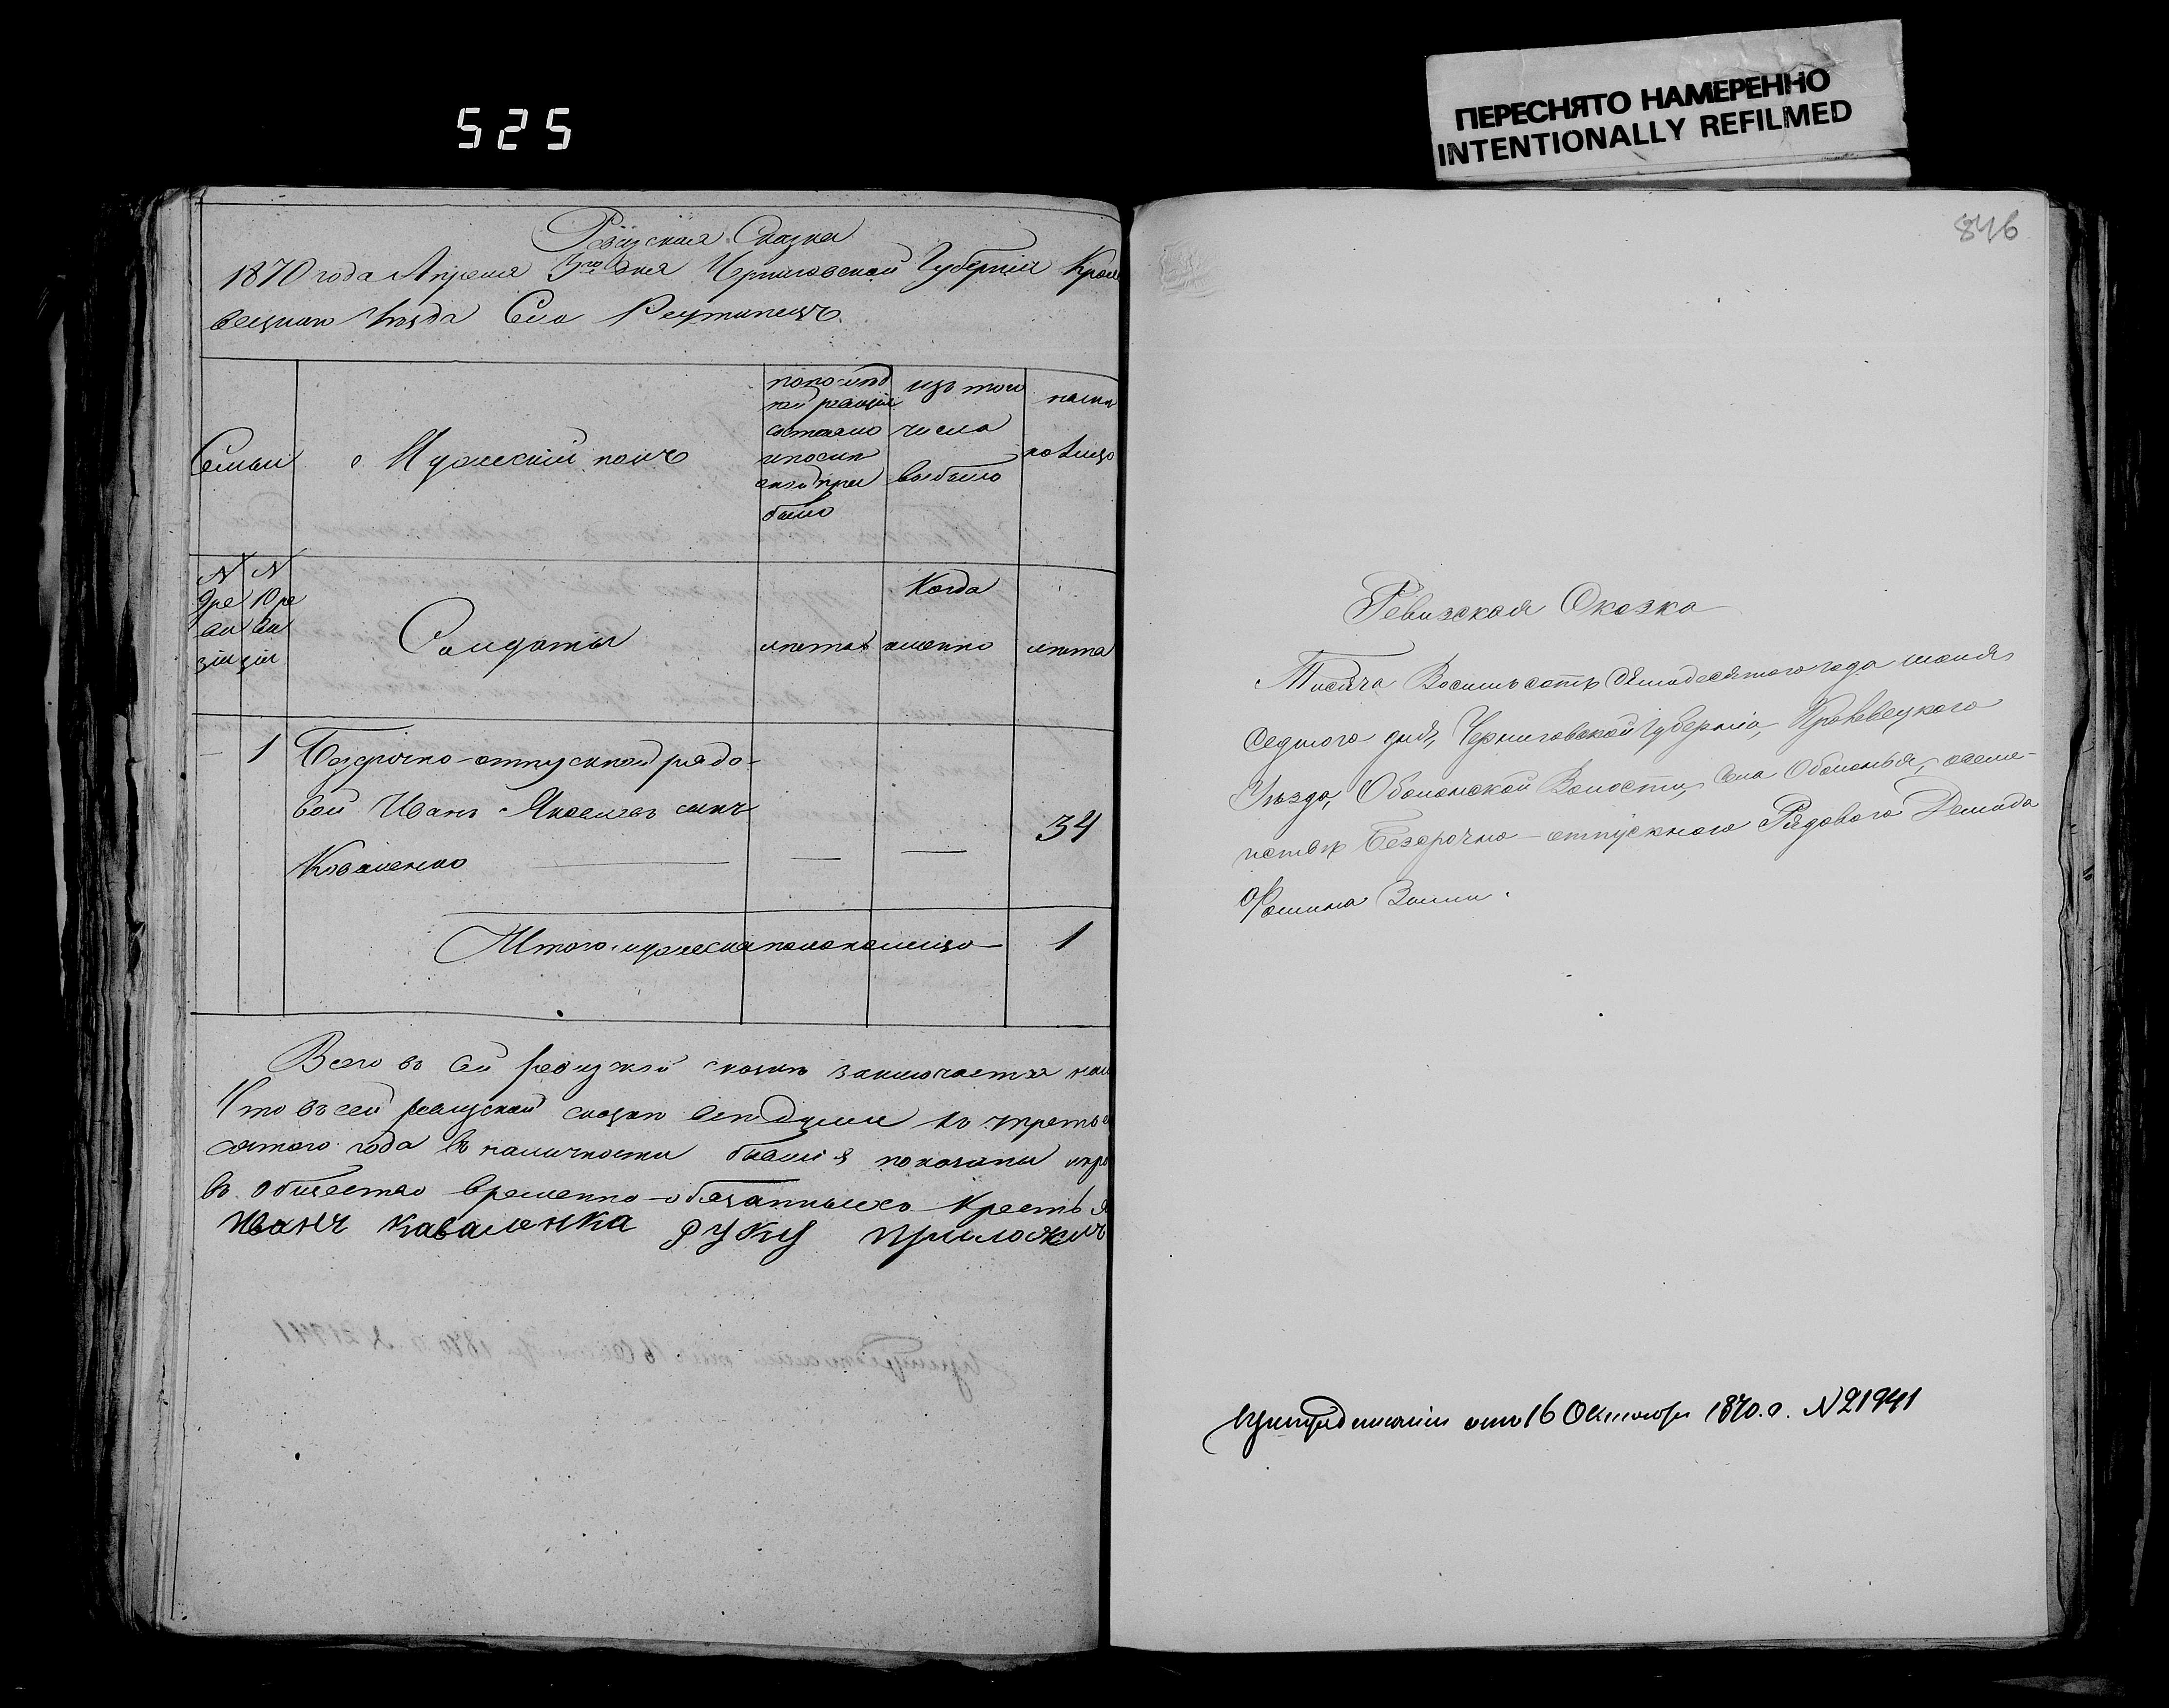 525
ПЕРЕСНЯТО НАМЕРЕННО
INTENTIONALLY REFILMED
Ревизская Сказка
1870 года Апреля 5го дня Черниговской Губернии Кроле
вецкаго Уѣзда Села Реутинецъ
Семьи
Мужеский полъ
по послѣд
ней ревизіи
состояло
и после
оной при
было
изъ того
числа
выбыло
нали
колицо
N 9 ре ви зіи
N 10 ре ви зіи
Солдаты
лѣта
Когда
именно
лѣта
1 Безсрочно-отпускной рядо-
вой Иванъ Яковлевъ сынъ
Коваленко — — — 34
Итого мужеска пола на лицо 1
Всего въ сей ревизкой сказкѣ заключается
Что въ сей ревизской сказкѣ всѣ души къ
сятого года въ наличности бывшія показаны
въ общество временно-обязанныхъ Крестья
Иванъ Коваленка руку приложилъ
846
Ревизская Сказка
Тисяча Восимьсотъ Семидесятого года июня
седмого дня, Черниговской Губерніи, Кролевецкого
Уѣзда, Оболонской Волости, Села Оболонья, о семе-
йствѣ Безсрочно-отпускного Рядового Демида
Фомина
При предписаніи отъ 16 Октября 1870 г. N 21941